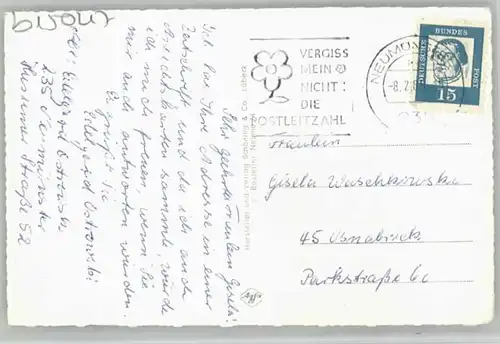 Sehr geehrtes Fräulein Gisela!
Ich las Ihre Adresse in einer
Zeitschrift und da ich auch
Ansichtskarten sammle, würde
ich mich freuen, wenn Sie
mir auch antworten würden.
Es grüßt Sie
Edelgard Ostrowski
Abs. Edelgard Ostrowski
235 Neumünster
Husumer Straße 52
VERGISS
MEIN
NICHT:
DIE
POSTLEITZAHL
NEUMÜN
-8.7.6
DEUTSCHE
BUNDES
POST
15
Fräulein
Gisela Waschkowska
45 Osnabrück
Parkstraße 6c